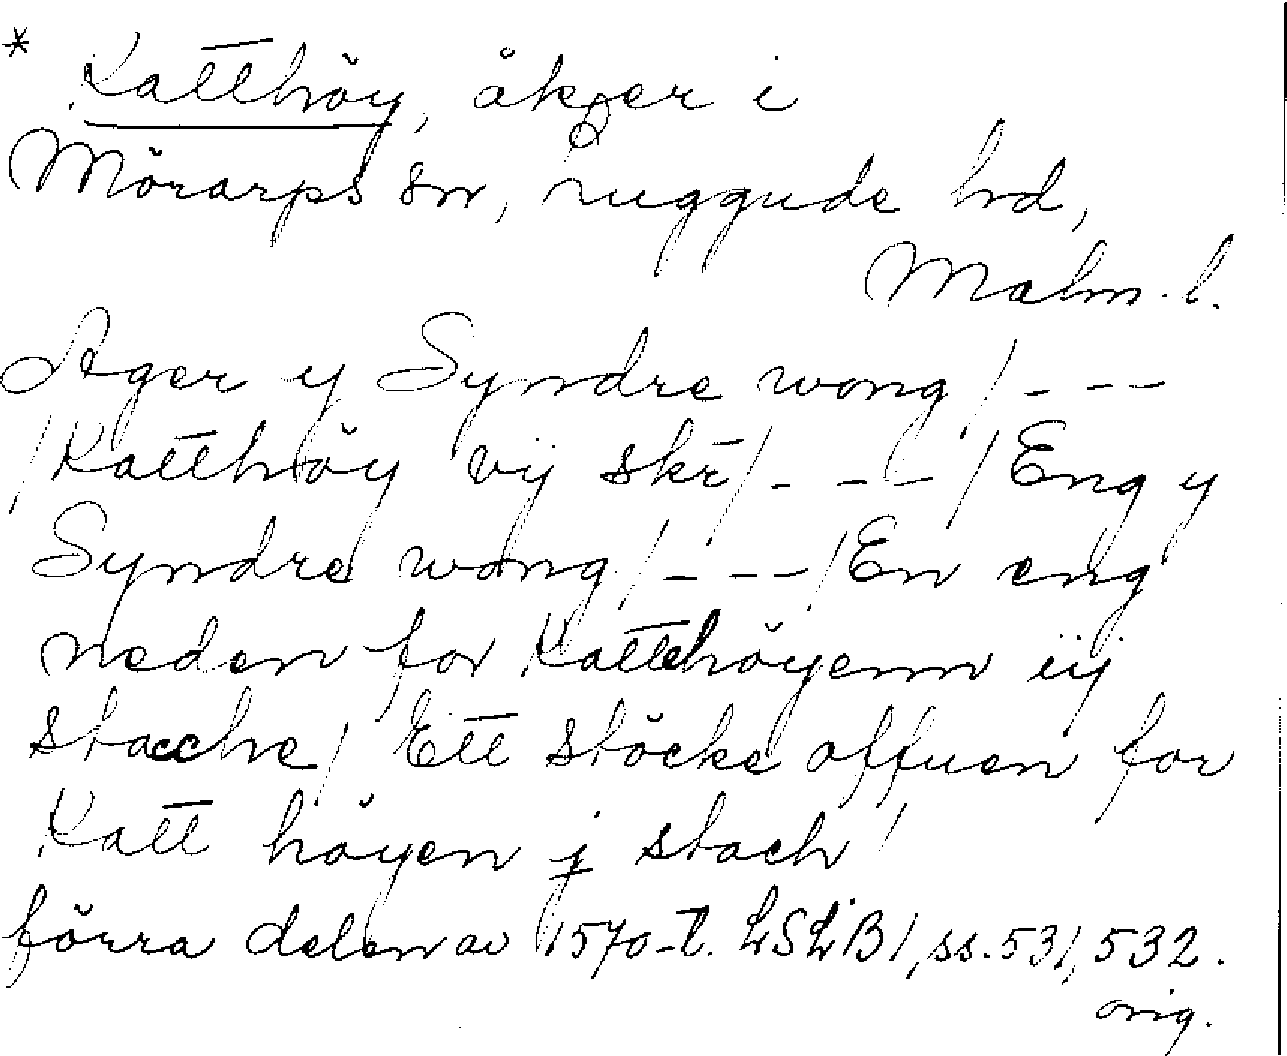 * Katthöy, åker i
Mörarps sn, Luggude hd,
Malm. l.
Ager y Syndre wong / - - -
/ Katthöy vij skr / - - - / Eng y
Syndre wong / - - - / En eng
neden for Kattehöyenn iij
stacche / Ett stöcke offuen for
Katt höyen j stach /
förra delen av 1570-t. LSLB 1, ss. 531, 532.
orig.